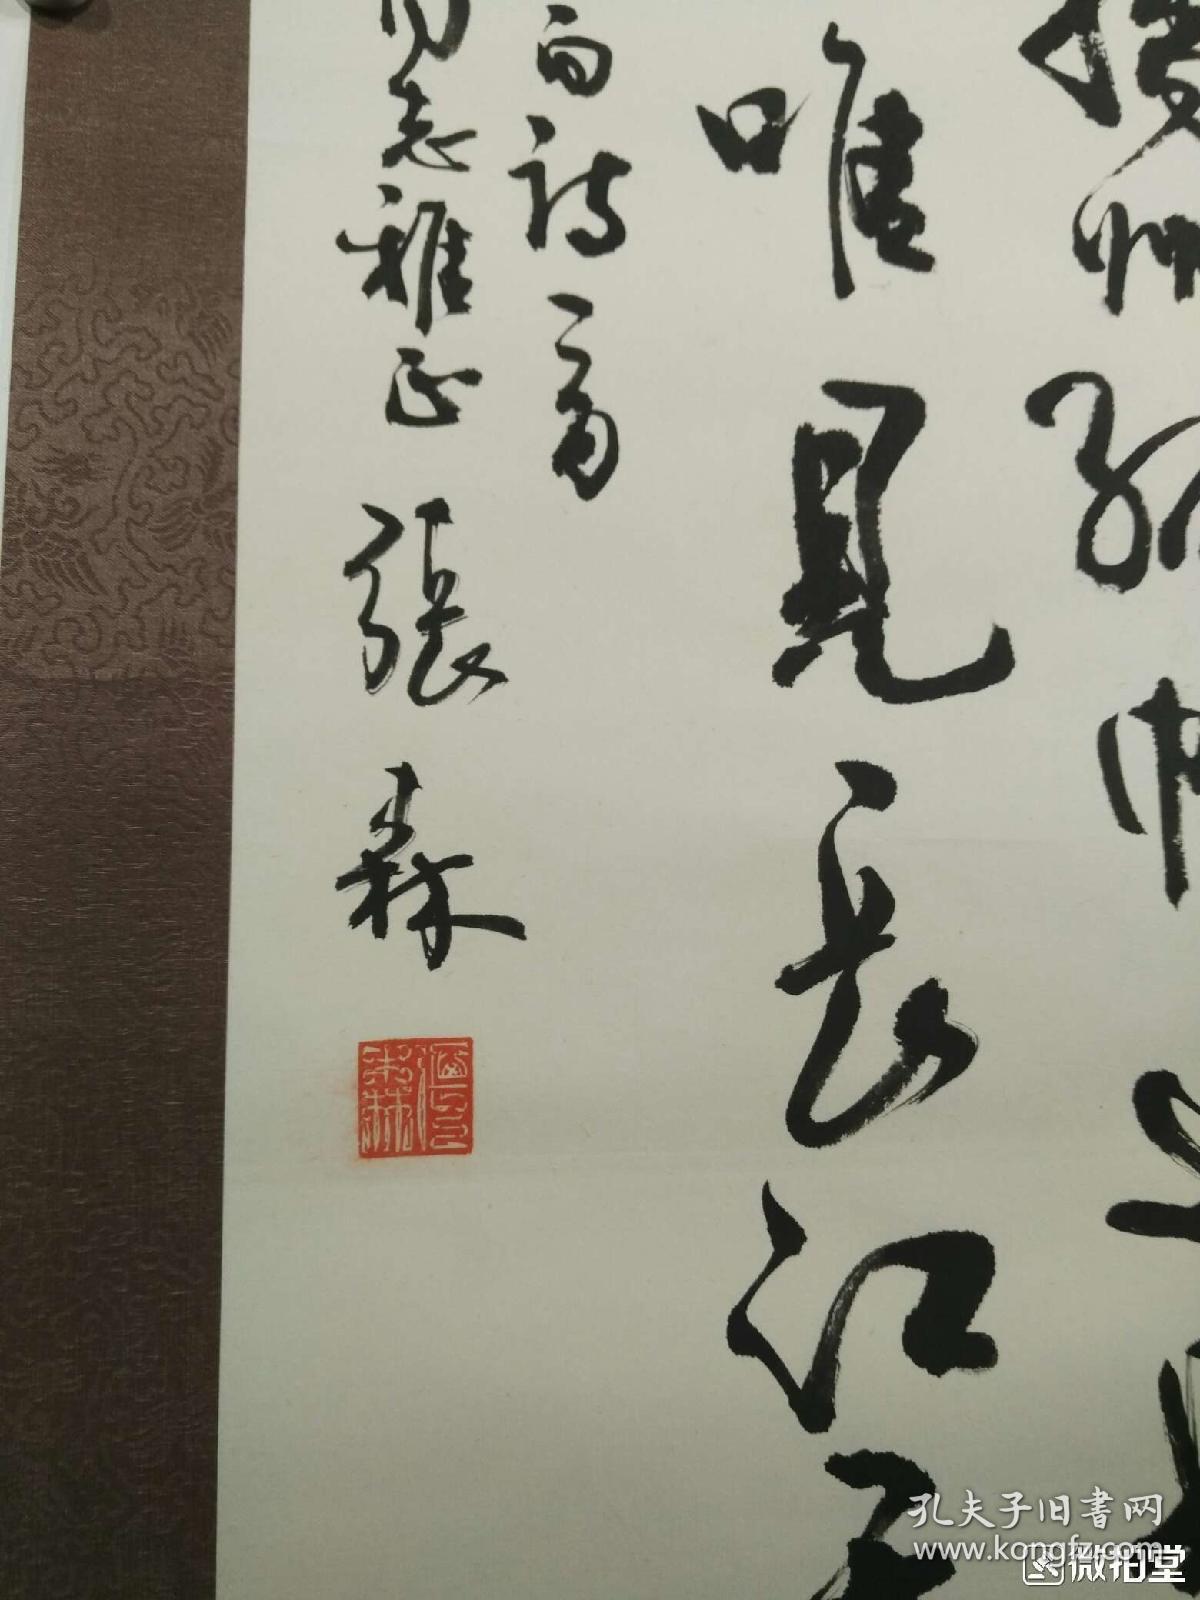 揚州孤帆
唯見長江天
白詩二首
同志雅正 張森
張森
孔夫子旧書网
www.kongfz.com
微拍堂